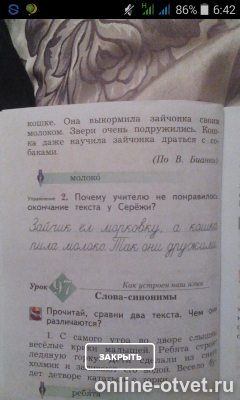 86% 6:42
кошке. Она выкормила зайчонка своим
молоком. Звери очень подружились. Кош-
ка даже научила зайчонка драться с со-
баками.
(По В. Бианки)
молоко
Упражнение 2. Почему учителю не понравилось
окончание текста у Серёжи?
Зайчик ел морковку, а кошка
пила молоко. Так они дружили.
Урок 97
Как устроен наш язык
Слова-синонимы
Прочитай, сравни два текста. Чем они
различаются?
1. С самого утра во дворе слышны
весёлые крики малышей. Ребята
ледяную горку. сделали на
холмик и водой. Весело
детворе
ЗАКРЫТЬ
ребята
online-otvet.ru